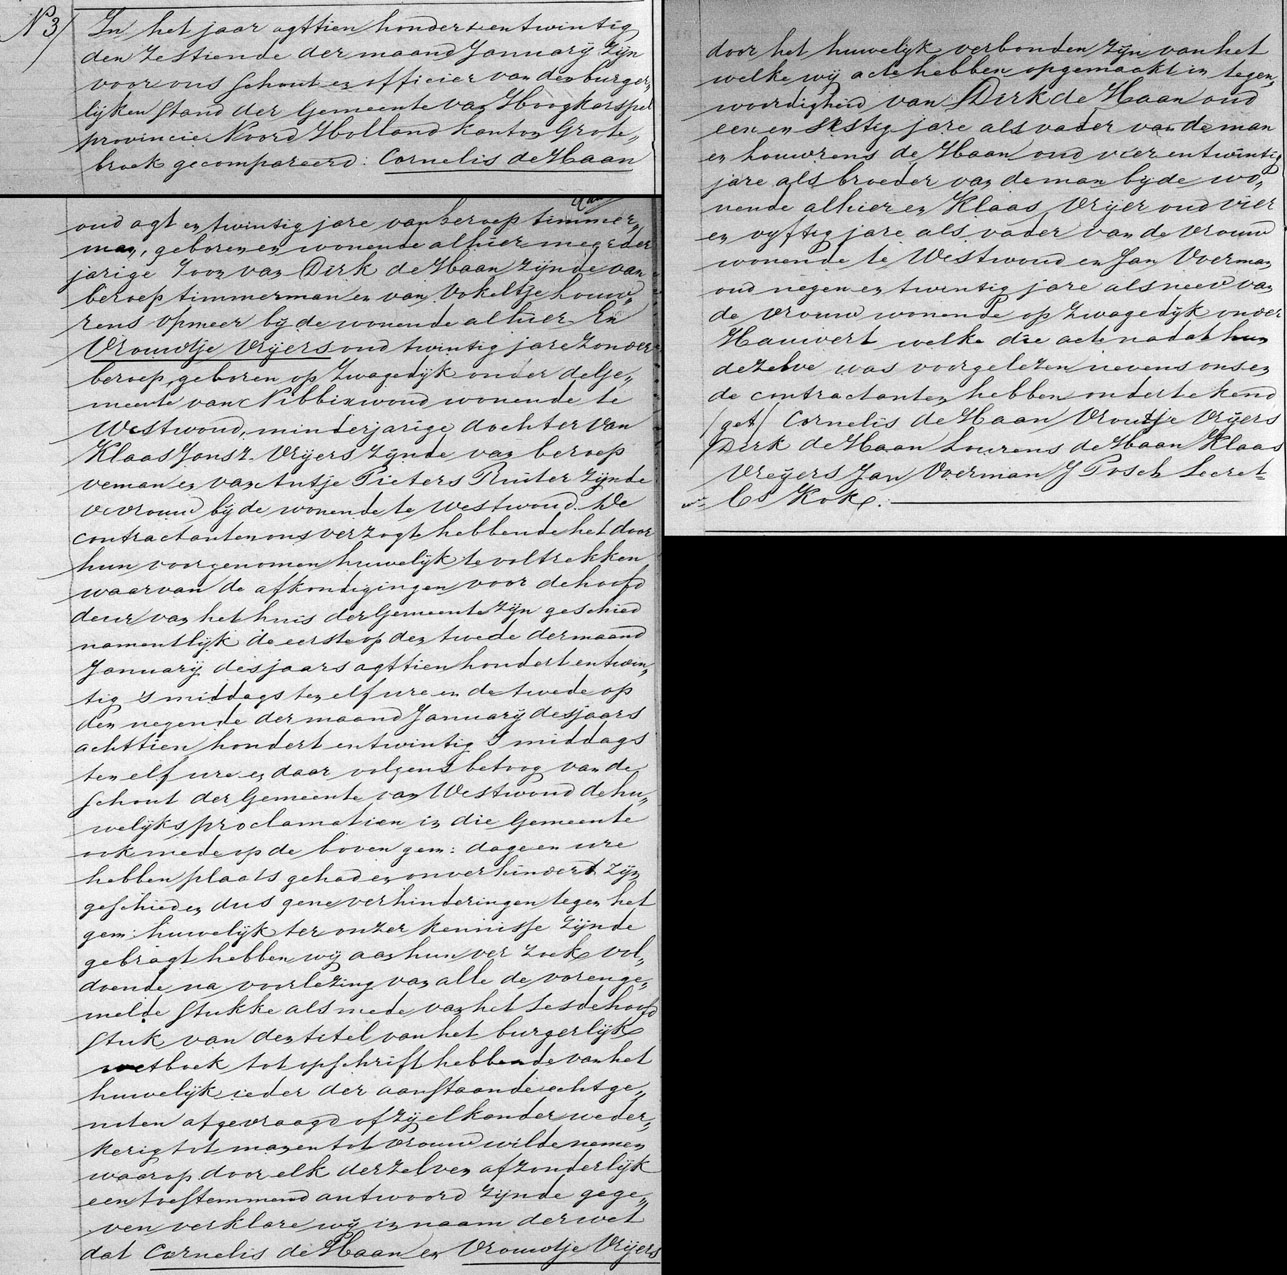 N 3/
In het jaar agttien hondert en twintig
den zestiende der maand Januarij zijn
voor ons schout en officier van den burger„
lijken stand der Gemeente van Hoogkarspel
provincie Noord Holland kanton Grote„
broek gecompareerd: Cornelis de Haan
oud agt en twintig jare van beroep timmer„
man, geboren en wonende alhier meerder
jarige Zoon van Dirk de Haan zijnde van
beroep timmerman en van Vokeltje houw„
rens opmeer bij de wonende alhier En
Vrouwtje Vrijers oud twintig jare zonder
beroep, geboren op Zwagedijk onder de Ge„
meente van Nibbixwoud wonende te
Westwoud, minderjarige dochter van
Klaas Jansz. Vrijers zijnde van beroep
veeman en van Antje Pieters Ruiter zijnde
vevrouw bij de wonende te Westwoud. De
contractanten ons verzogt hebbende het door
hun voorgenomen huwelijk te voltrekken
waarvan de afkondigingen voor de hoofd
deur van het huis der Gemeente zijn geschied
namentlijk de eerste op den twede der maand
Januarij des jaars agttien hondert en twin„
tig 's middags ten elf ure en de twede op
den negende der maand Januarij des jaars
achttien hondert en twintig S middags
ten elf ure en daar volgens betoog van de
schout der Gemeente van Westwoud de hu„
welijks proclamatien in die Gemeente
ook mede op de boven gem: dage en ure
hebben plaats gehad en onverhindert zijn
geschied en dus gene verhinderingen tegen het
gem: huwelijk ter onzer kennisse zijnde
gebragt hebben wij aan hun ver zoek vol„
doende na voorlezing van alle de vorenge„
melde stukke als mede van het sesde hoofd
stuk van den titel van het burgerlijk
wetboek tot opschrift hebbende van het
huwelijk ieder der aanstaande echtge„
noten afgevraagd of zij elkander weder„
kerig tot man en tot vrouw wilde nemen
waarop door elk derzelven afzonderlijk
een toestemmend antwoord zijnde gege„
ven verklare wij in naam der wet
dat Cornelis de Haan en Vrouwtje Vrijers
door het huwelijk verbonden zijn van het
welke wij acte hebben opgemaakt in tegen„
woordigheid van Dirk de Haan oud
een en sestig jare als vader van de man
en houwrens de Haan oud vier en twintig
jare als broeder van de man bij de wo„
nende alhier en Klaas Vrijer oud vier
en vijftig jare als vader van de vrouw
wonende te Westwoud en Jan Voerman
oud negen en twintig jare als neev van
de vrouw wonende op Zwagedijk onder
Hauwert welke die acte nadat hun
dezelve was voorgelezen nevens onsen
de contractanten hebben ondertekend
(get) Cornelis de Haan Vrouwtje Vrijers
Dirk de Haan Lourens de Haan Klaas
Vreijers Jan Voerman J Posch Secret„
Cs Kok.